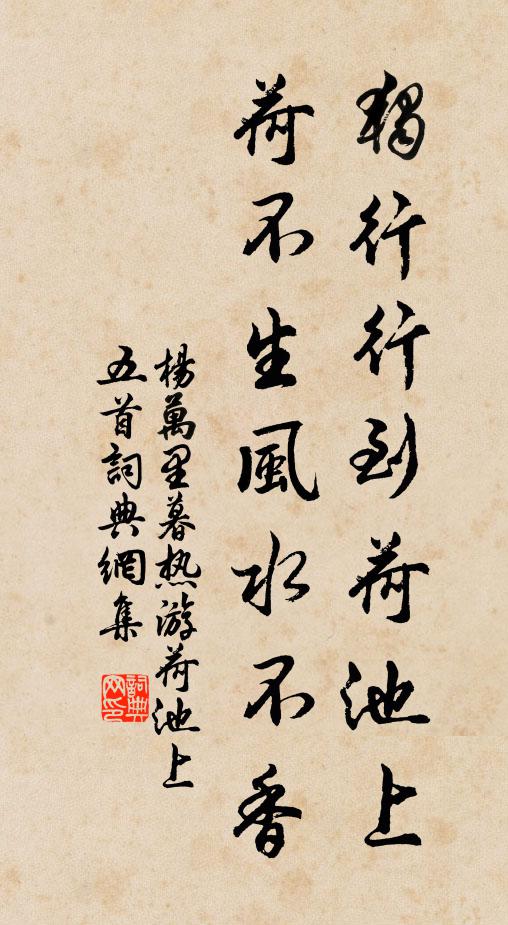 獨行行到荷池上
荷不生風水不香
楊萬里暮热游荷池上
五首詞典網集
詞典网印